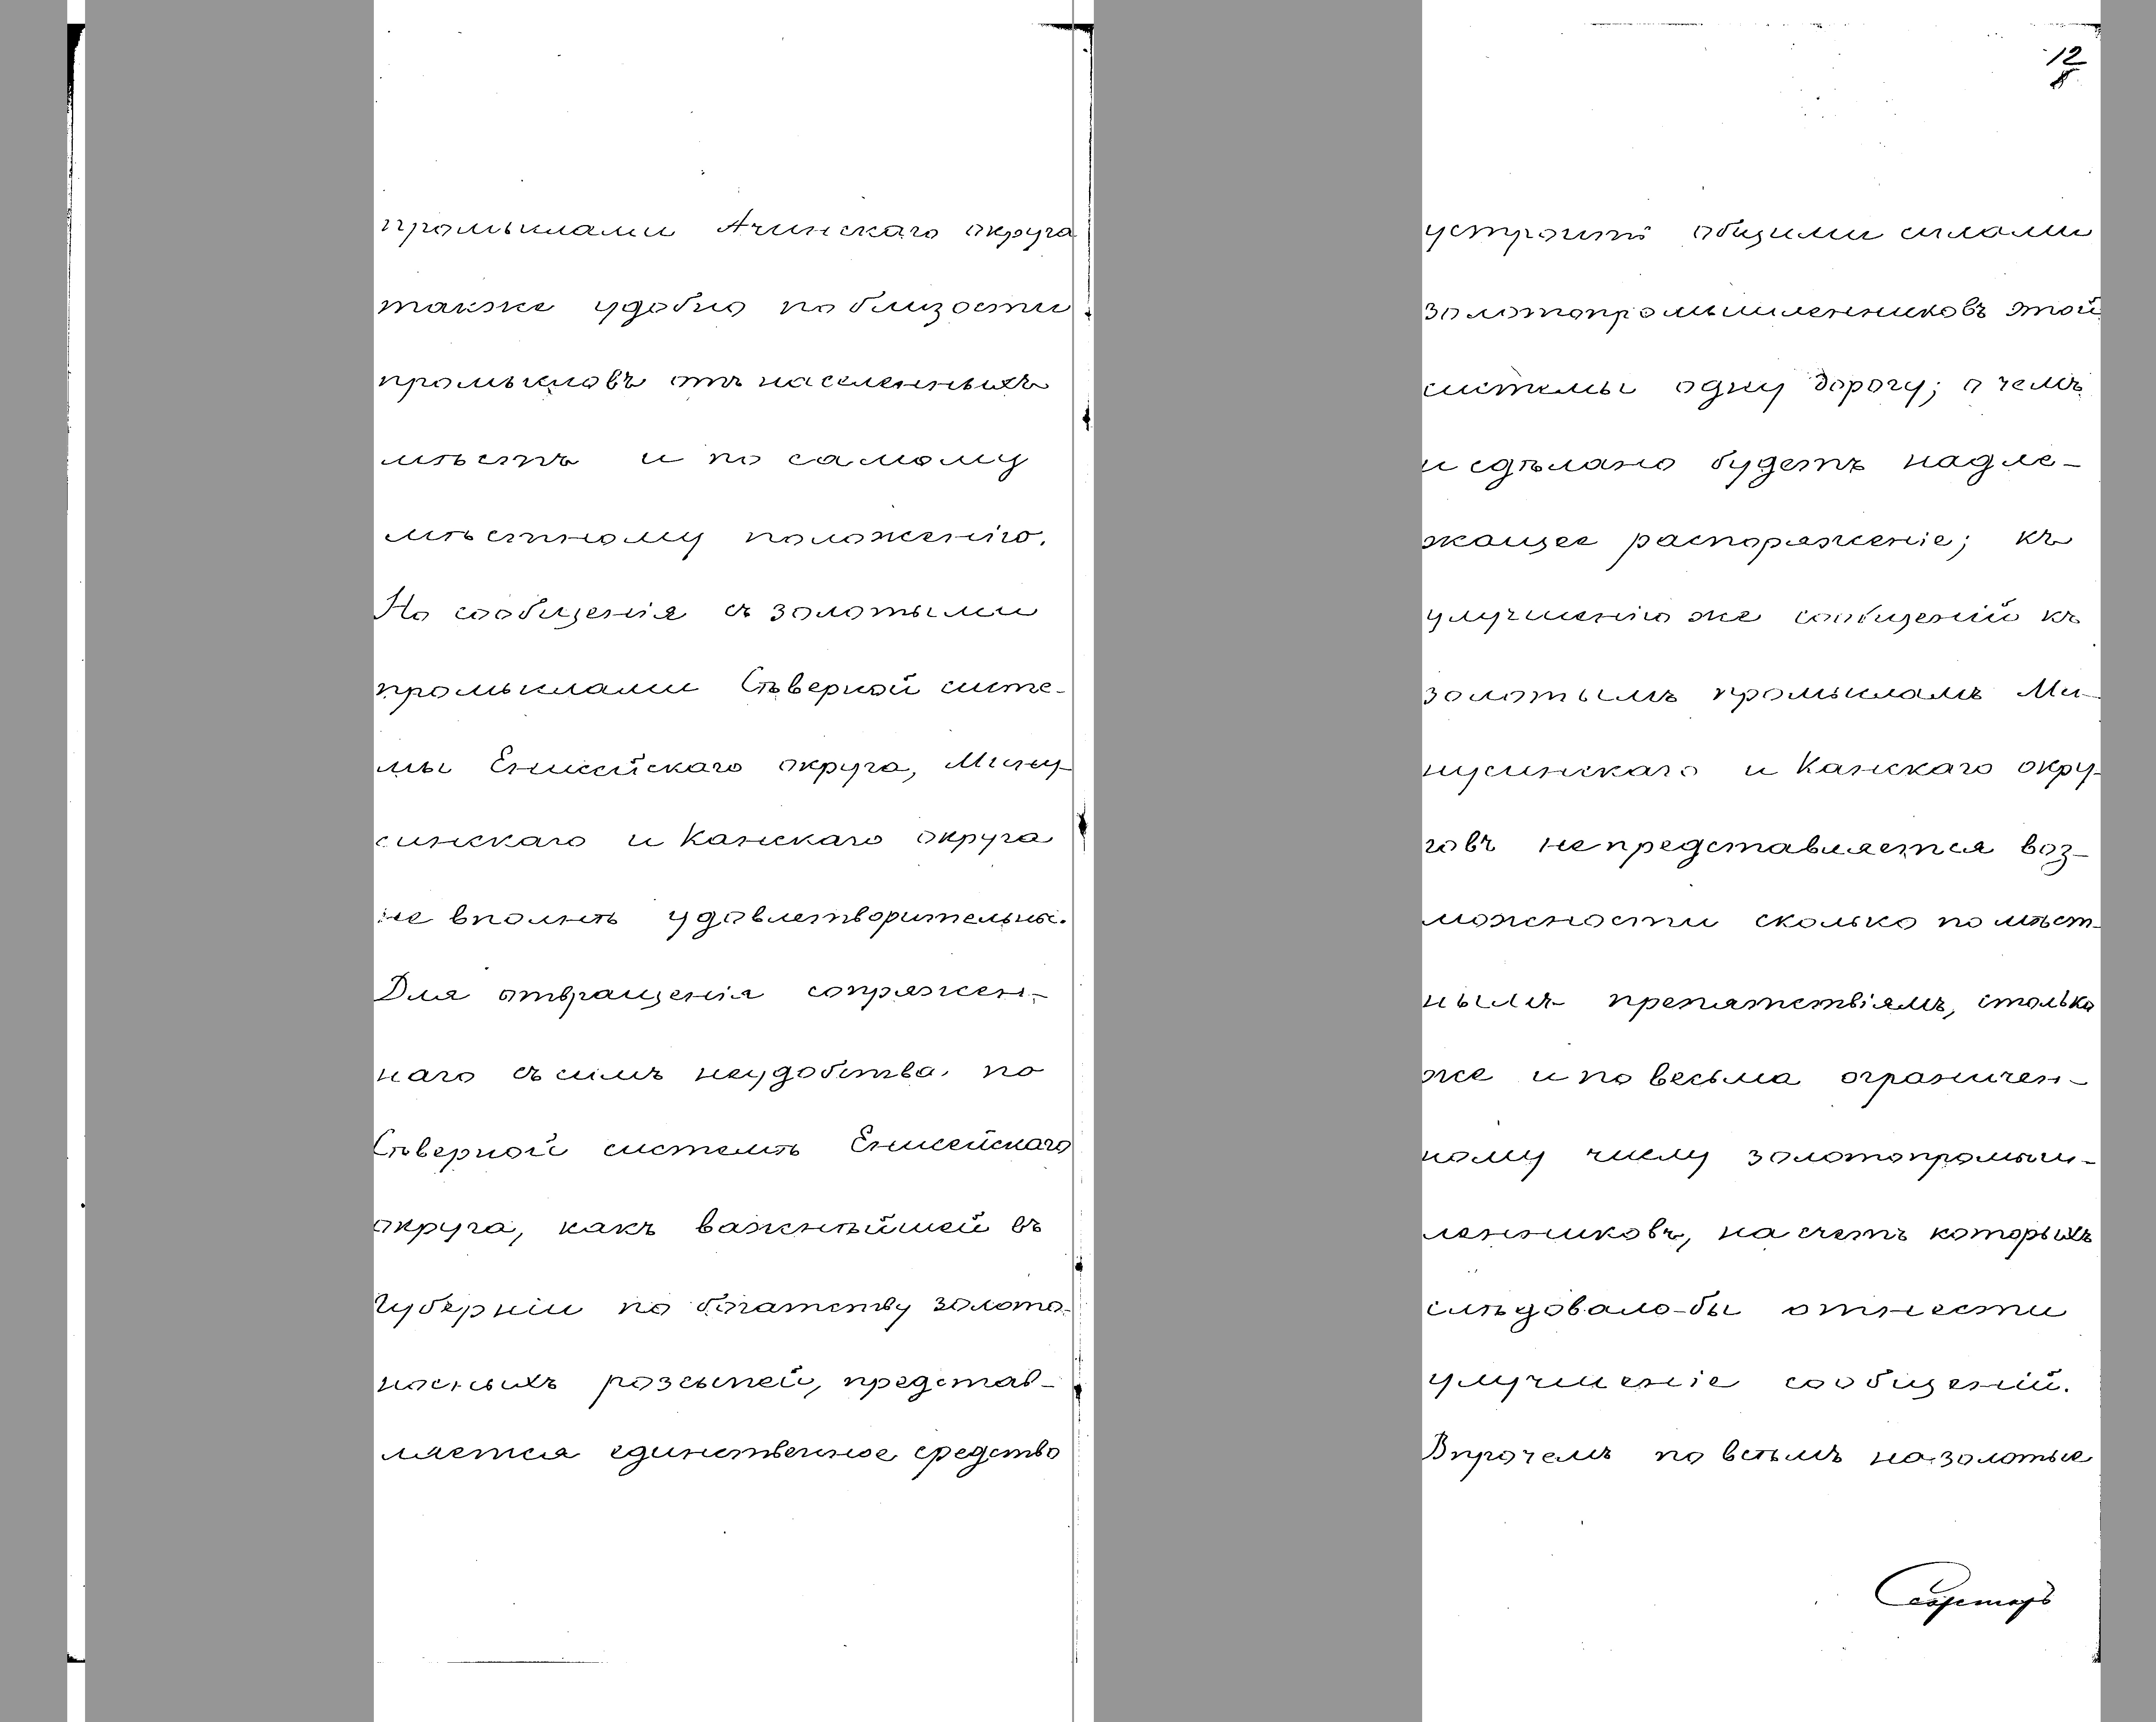 промыслами Ачинскаго округа
также удобно по близости
промысловъ отъ населенныхъ
мѣстъ и по самому
мѣстному положенію.
Но сообщенія съ золотыми
промыслами Сѣверной систе-
мы Енисейскаго округа, Мину-
синскаго и Канскаго округа
не вполнѣ удовлетворительны.
Для отвращенія сопряжен-
наго съ симъ неудобства, по
Сѣверной системѣ Енисейскаго
округа, какъ важнѣйшей въ
Губерніи по богатству золото-
носныхъ розсыпей, представ-
ляется единственное средство
12
устроить общими силами
золотопромышленниковъ этой
системы одну дорогу; о чемъ
и сдѣлано будетъ надле-
жащее распоряженіе; къ
улучшенію же сообщеній къ
золотымъ промысламъ Ми-
нусинскаго и Канскаго окру-
говъ непредставляется воз-
можности сколько по мѣст-
нымъ препятствіямъ, столько
же и по весьма ограничен-
ному числу золотопромыш-
ленниковъ, на счетъ которыхъ
слѣдовало-бы отнести
улучшеніе сообщеній.
Впрочемъ по всѣмъ на золотые